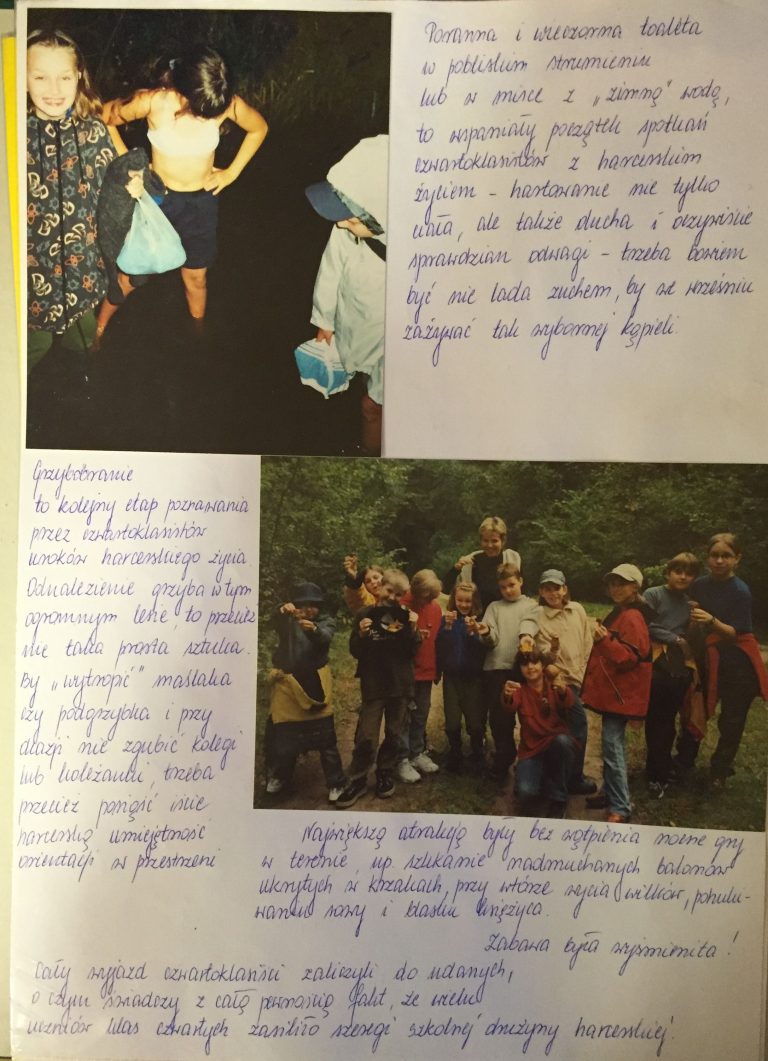 Poranna i wieczorna toaleta
w pobliskim strumieniu
lub w misce z „zimną” wodą,
to wspaniały początek spotkań
czwartoklasistów z harcerskim
życiem – hartowanie nie tylko
ciała, ale także ducha i oczywiście
sprawdzian odwagi – trzeba bowiem
być nie lada zuchem, by we wrześniu
zażywać tak wybornej kąpieli.
Grzybobranie
to kolejny etap poznawania
przez czwartoklasistów
uroków harcerskiego życia.
Odnalezienie grzyba w tym
ogromnym lesie, to przecież
nie taka prosta sztuka.
By „wytropić” maślaka
czy podgrzybka i przy
okazji nie zgubić kolegi
lub koleżanki, trzeba
przecież posiąść iście
harcerską umiejętność
orientacji w przestrzeni
Największą atrakcją były bez wątpienia nocne gry
w terenie, np. szukanie nadmuchanych balonów
ukrytych w krzakach, przy wtórze wycia wilków, pohuki-
waniu sowy i blasku księżyca.
Zabawa była wyśmienita!
Cały wyjazd czwartoklaściści zaliczyli do udanych,
o czym świadczy z całą pewnością fakt, że wielu
uczniów klas czwartych zasiliło szeregi szkolnej drużyny harcerskiej.